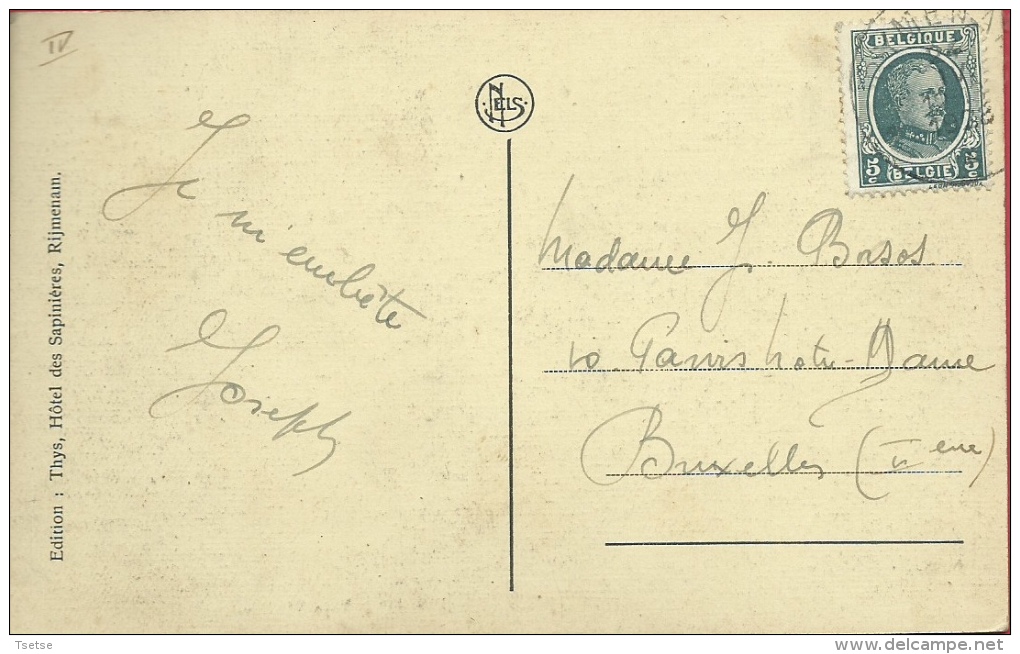 IV
NELS
MENA
BELGIQUE
5c 5c
BELGIË
Je
m'embête
Joseph
Madame J. Borsos
10. Parvis Notre-Dame
Bruxelles (II eme)
Edition : Thys, Hôtel des Sapinières, Rijmenam.
Tsetse
www.delcampe.net